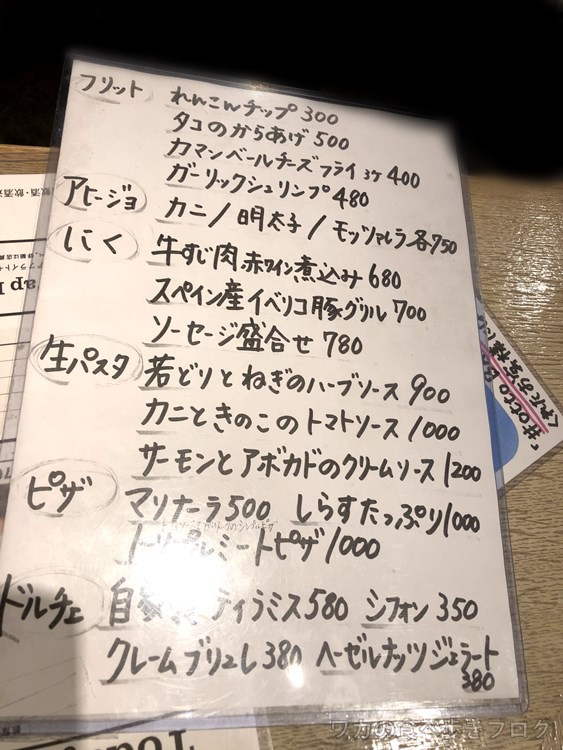 フリット れんこんチップ 300
タコのからあげ 500
カマンベールチーズフライ 3ケ 400
ガーリックシュリンプ 480
アヒージョ カニ / 明太子 / モッツァレラ 各750
にく 牛すじ肉 赤ワイン煮込み 680
スペイン産イベリコ豚グリル 700
ソーセージ盛合せ 780
生パスタ 若どりとねぎのハーブソース 900
カニときのこのトマトソース 1000
サーモンとアボカドのクリームソース 1200
ピザ マリナーラ 500 しらすたっぷり 1000
トリプルミートピザ 1000
ドルチェ 自家製ティラミス 580 シフォン 350
クレームブリュレ 380 ヘーゼルナッツジェラート
380